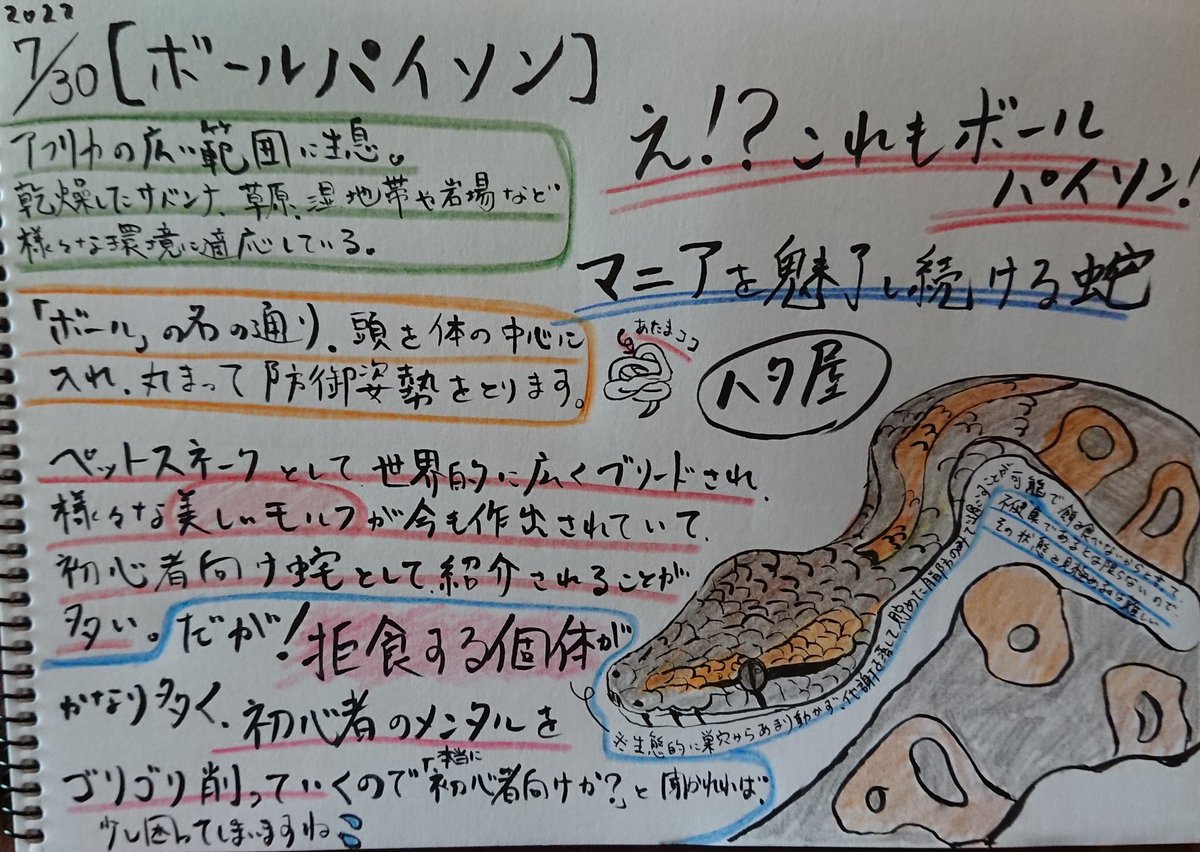 2022
7/30 [ボールパイソン]
アフリカの広い範囲に生息。
乾燥したサバンナ、草原、湿地帯や岩場など
様々な環境に適応している。
え!?これもボール
パイソン!
マニアを魅了し続ける蛇
「ボール」の名の通り、頭を体の中心に
入れ、丸まって防御姿勢をとります。
あたまココ
ハタ屋
ペットスネークとして世界的に広くブリードされ、
様々な美しいモルフが今も作出されていて、
初心者向け蛇として紹介されることが
多い。だが!拒食する個体が
かなり多く、初心者のメンタルを
ゴリゴリ削っていくので「本当に初心者向けか?」と聞かれれば、
少し困ってしまいますね
※生態的に巣穴からあまり動かず、代謝を落として、貯めた脂肪のみで過ごすことが
可能で餌を食べないからといって
不健康であるとは限らないので、
その状態を見極めるのは難しい